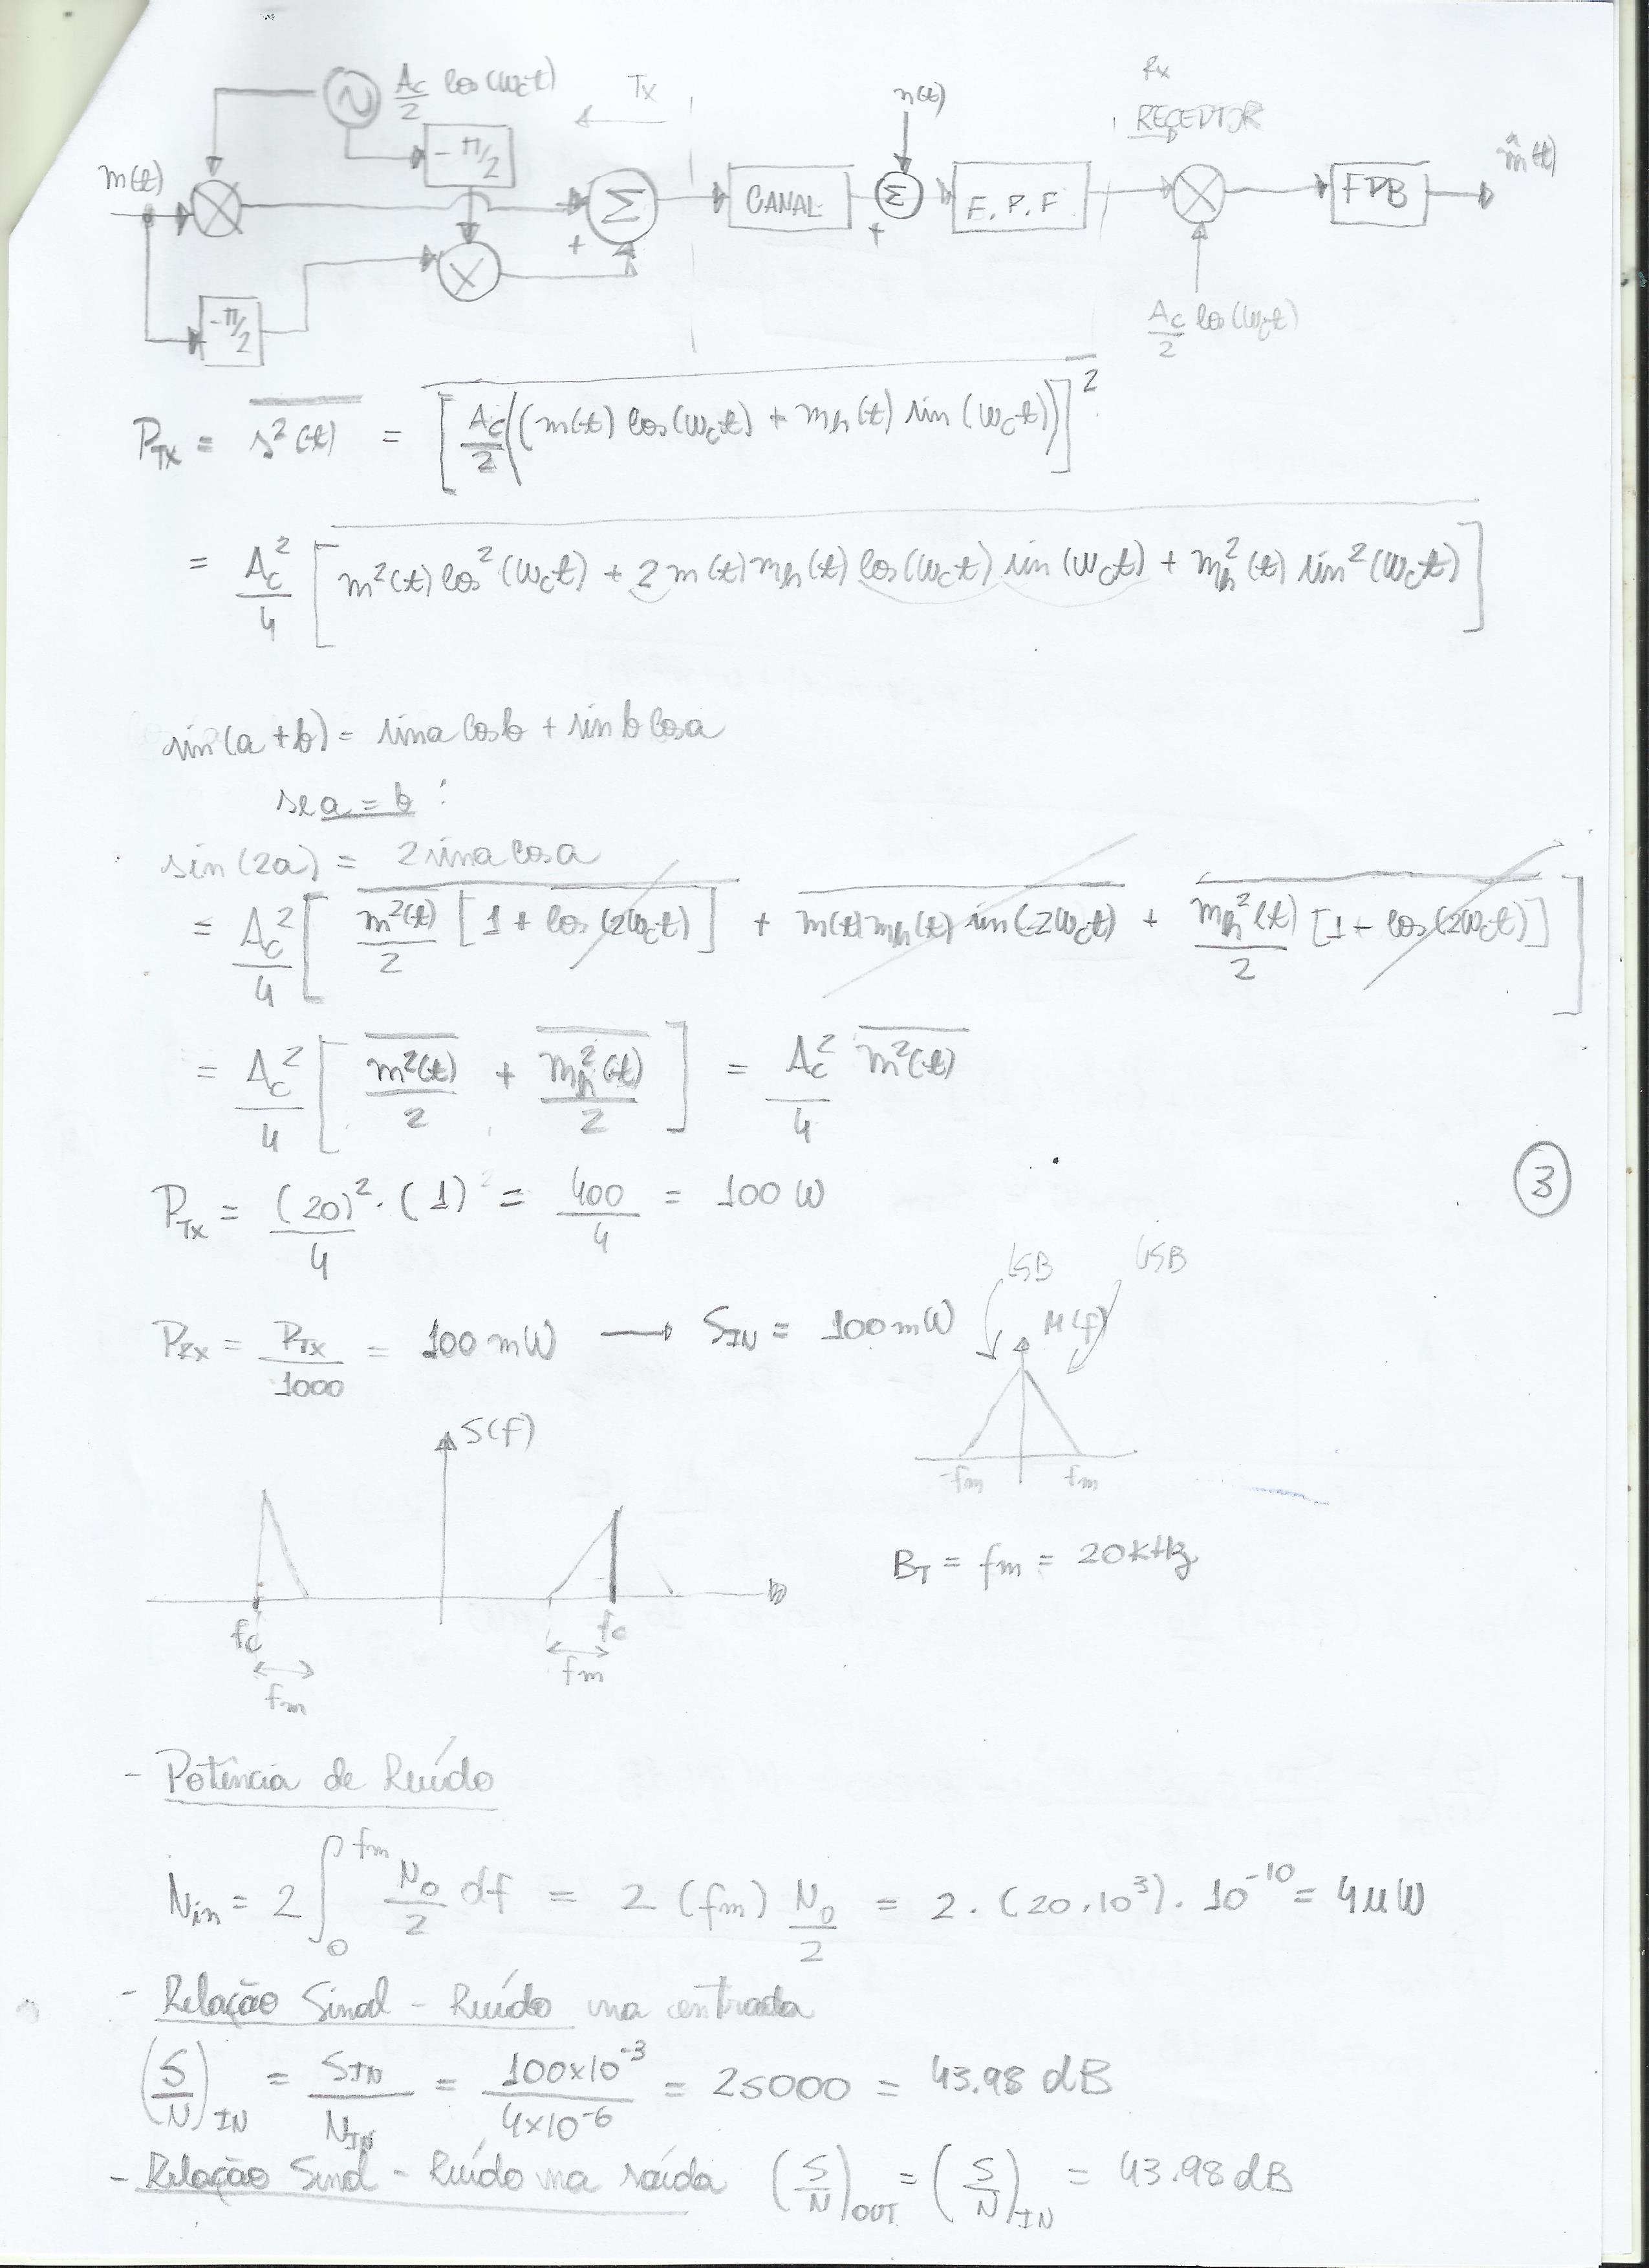 A_c/2 cos(ω_c t)
Tx
Rx
RECEPTOR
n(t)
m(t)
-π/2
Σ
+
CANAL
Σ
+
F.P.F.
FPB
m̂(t)
-π/2
A_c/2 cos(ω_c t)
P_TX = s²(t) = [A_c/2 ((m(t) cos(ω_c t) + m_h(t) sin(ω_c t))]²
= A_c²/4 [m²(t) cos²(ω_c t) + 2 m(t) m_h(t) cos(ω_c t) sin(ω_c t) + m_h²(t) sin²(ω_c t)]
sin(a+b) = sina cosb + sinb cosa
se a = b :
sin(2a) = 2 sina cosa
= A_c²/4 [m²(t)/2 [1 + cos(2ω_c t)] + m(t) m_h(t) sin(2ω_c t) + m_h²(t)/2 [1 - cos(2ω_c t)]]
= A_c²/4 [m²(t)/2 + m_h²(t)/2] = A_c²/4 m²(t)
P_TX = (20)²/4 . (1) = 400/4 = 100 W
3
P_RX = P_TX/1000 = 100 mW → S_IN = 100 mW
LSB
USB
M(f)
-fm
fm
S(f)
fc
fc
fm
fm
B_T = fm = 20 kHz
- Potência de Ruído
N_in = 2 ∫₀^fm N_0/2 df = 2 (fm) N_0/2 = 2 . (20.10³) . 10⁻¹⁰ = 4 µW
- Relação Sinal - Ruído na entrada
(S/N)_IN = S_IN/N_IN = 100x10⁻³/4x10⁻⁶ = 25000 = 43.98 dB
- Relação Sinal - Ruído na saída (S/N)_OUT = (S/N)_IN = 43.98 dB